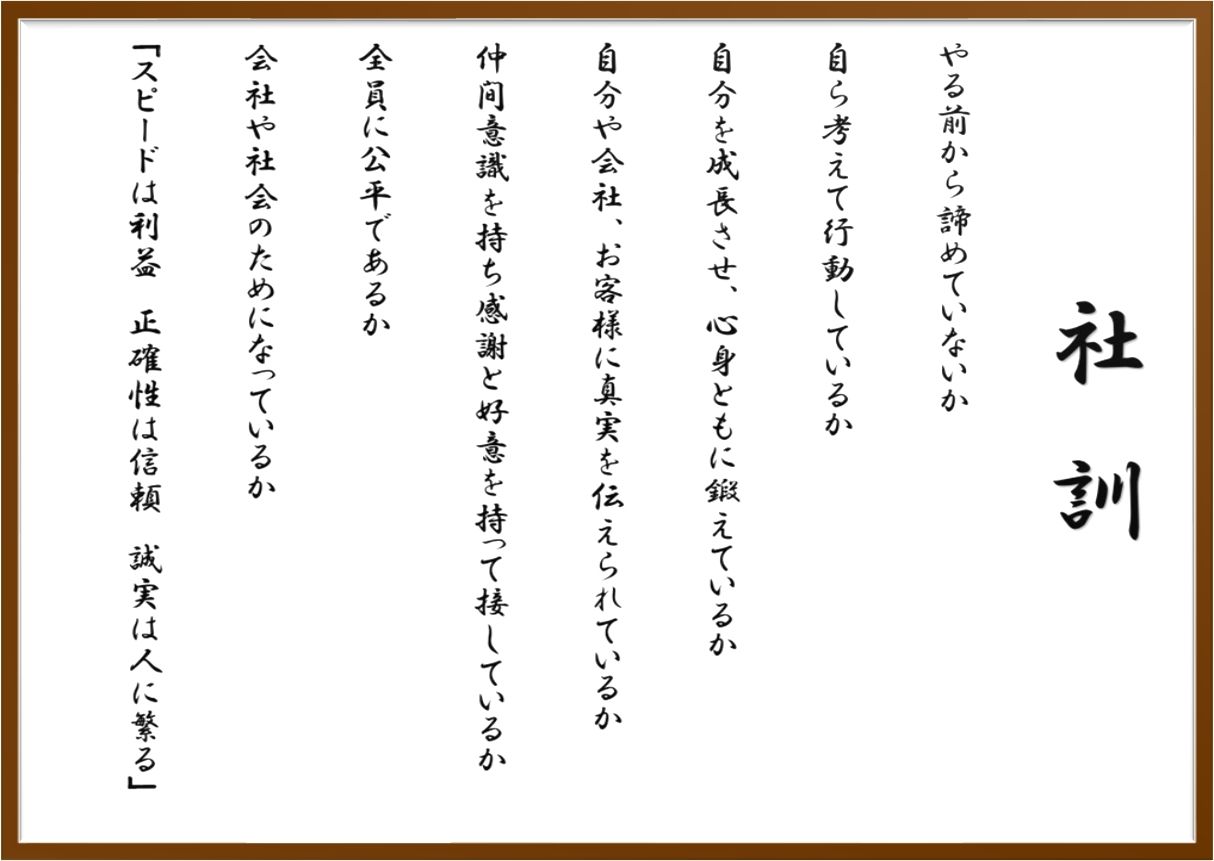 社訓
やる前から諦めていないか
自ら考えて行動しているか
自分を成長させ、心身ともに鍛えているか
自分や会社、お客様に真実を伝えられているか
仲間意識を持ち感謝と好意を持って接しているか
全員に公平であるか
会社や社会のためになっているか
「スピードは利益　正確性は信頼　誠実は人に繁る」